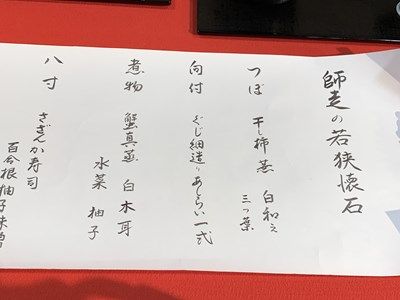 師走の若狭懐石
つぼ 干し柿 蕪 白和え
三つ葉
向付 ぐじ細造り あしらい一式
煮物 蟹真蒸 白木耳
水菜 柚子
八寸 さざんか寿司
百合根柚子味噌